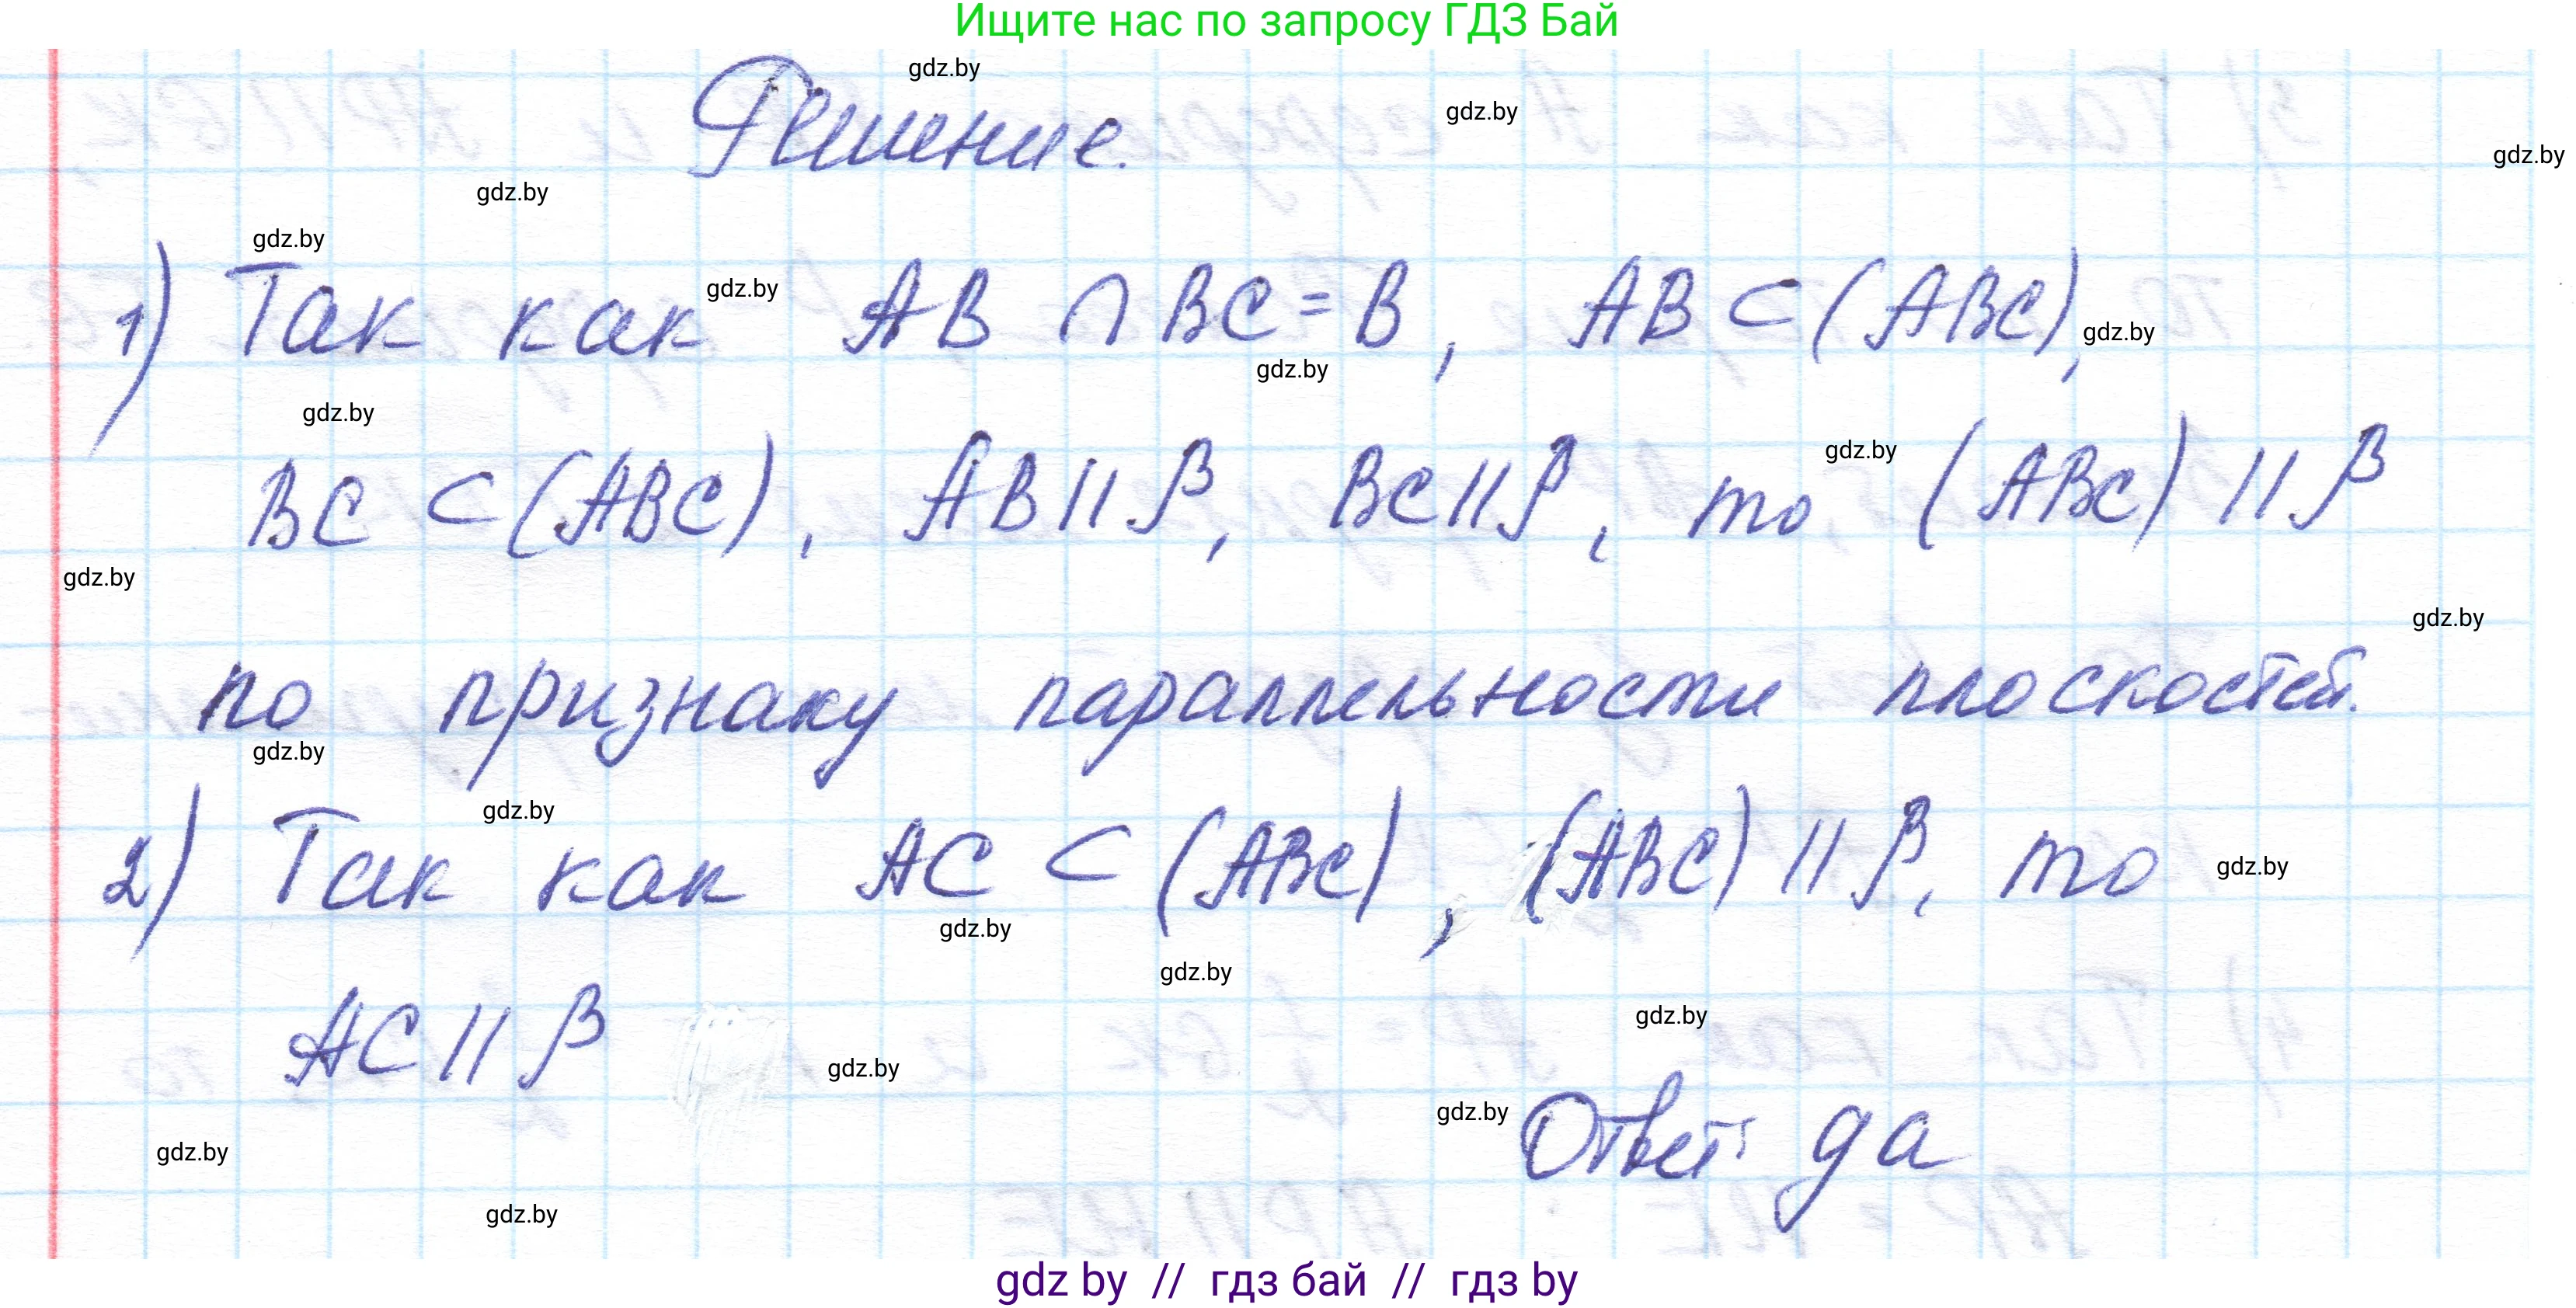 Ищите нас по запросу ГДЗ Бай
gdz.by
Решение.
gdz.by
gdz.by
gdz.by
gdz.by
1) Так как AB ∩ BC = B, AB ⊂ (ABC),
gdz.by
gdz.by
gdz.by
gdz.by
BC ⊂ (ABC), AB || β, BC || β, то (ABC) || β
gdz.by
gdz.by
gdz.by
по признаку параллельности плоскостей.
gdz.by
gdz.by
2) Так как AC ⊂ (ABC), (ABC) || β, то
gdz.by
gdz.by
gdz.by
gdz.by
AC || β
gdz.by
gdz.by
Ответ: да
gdz.by
gdz.by
gdz by // гдз бай // гдз by